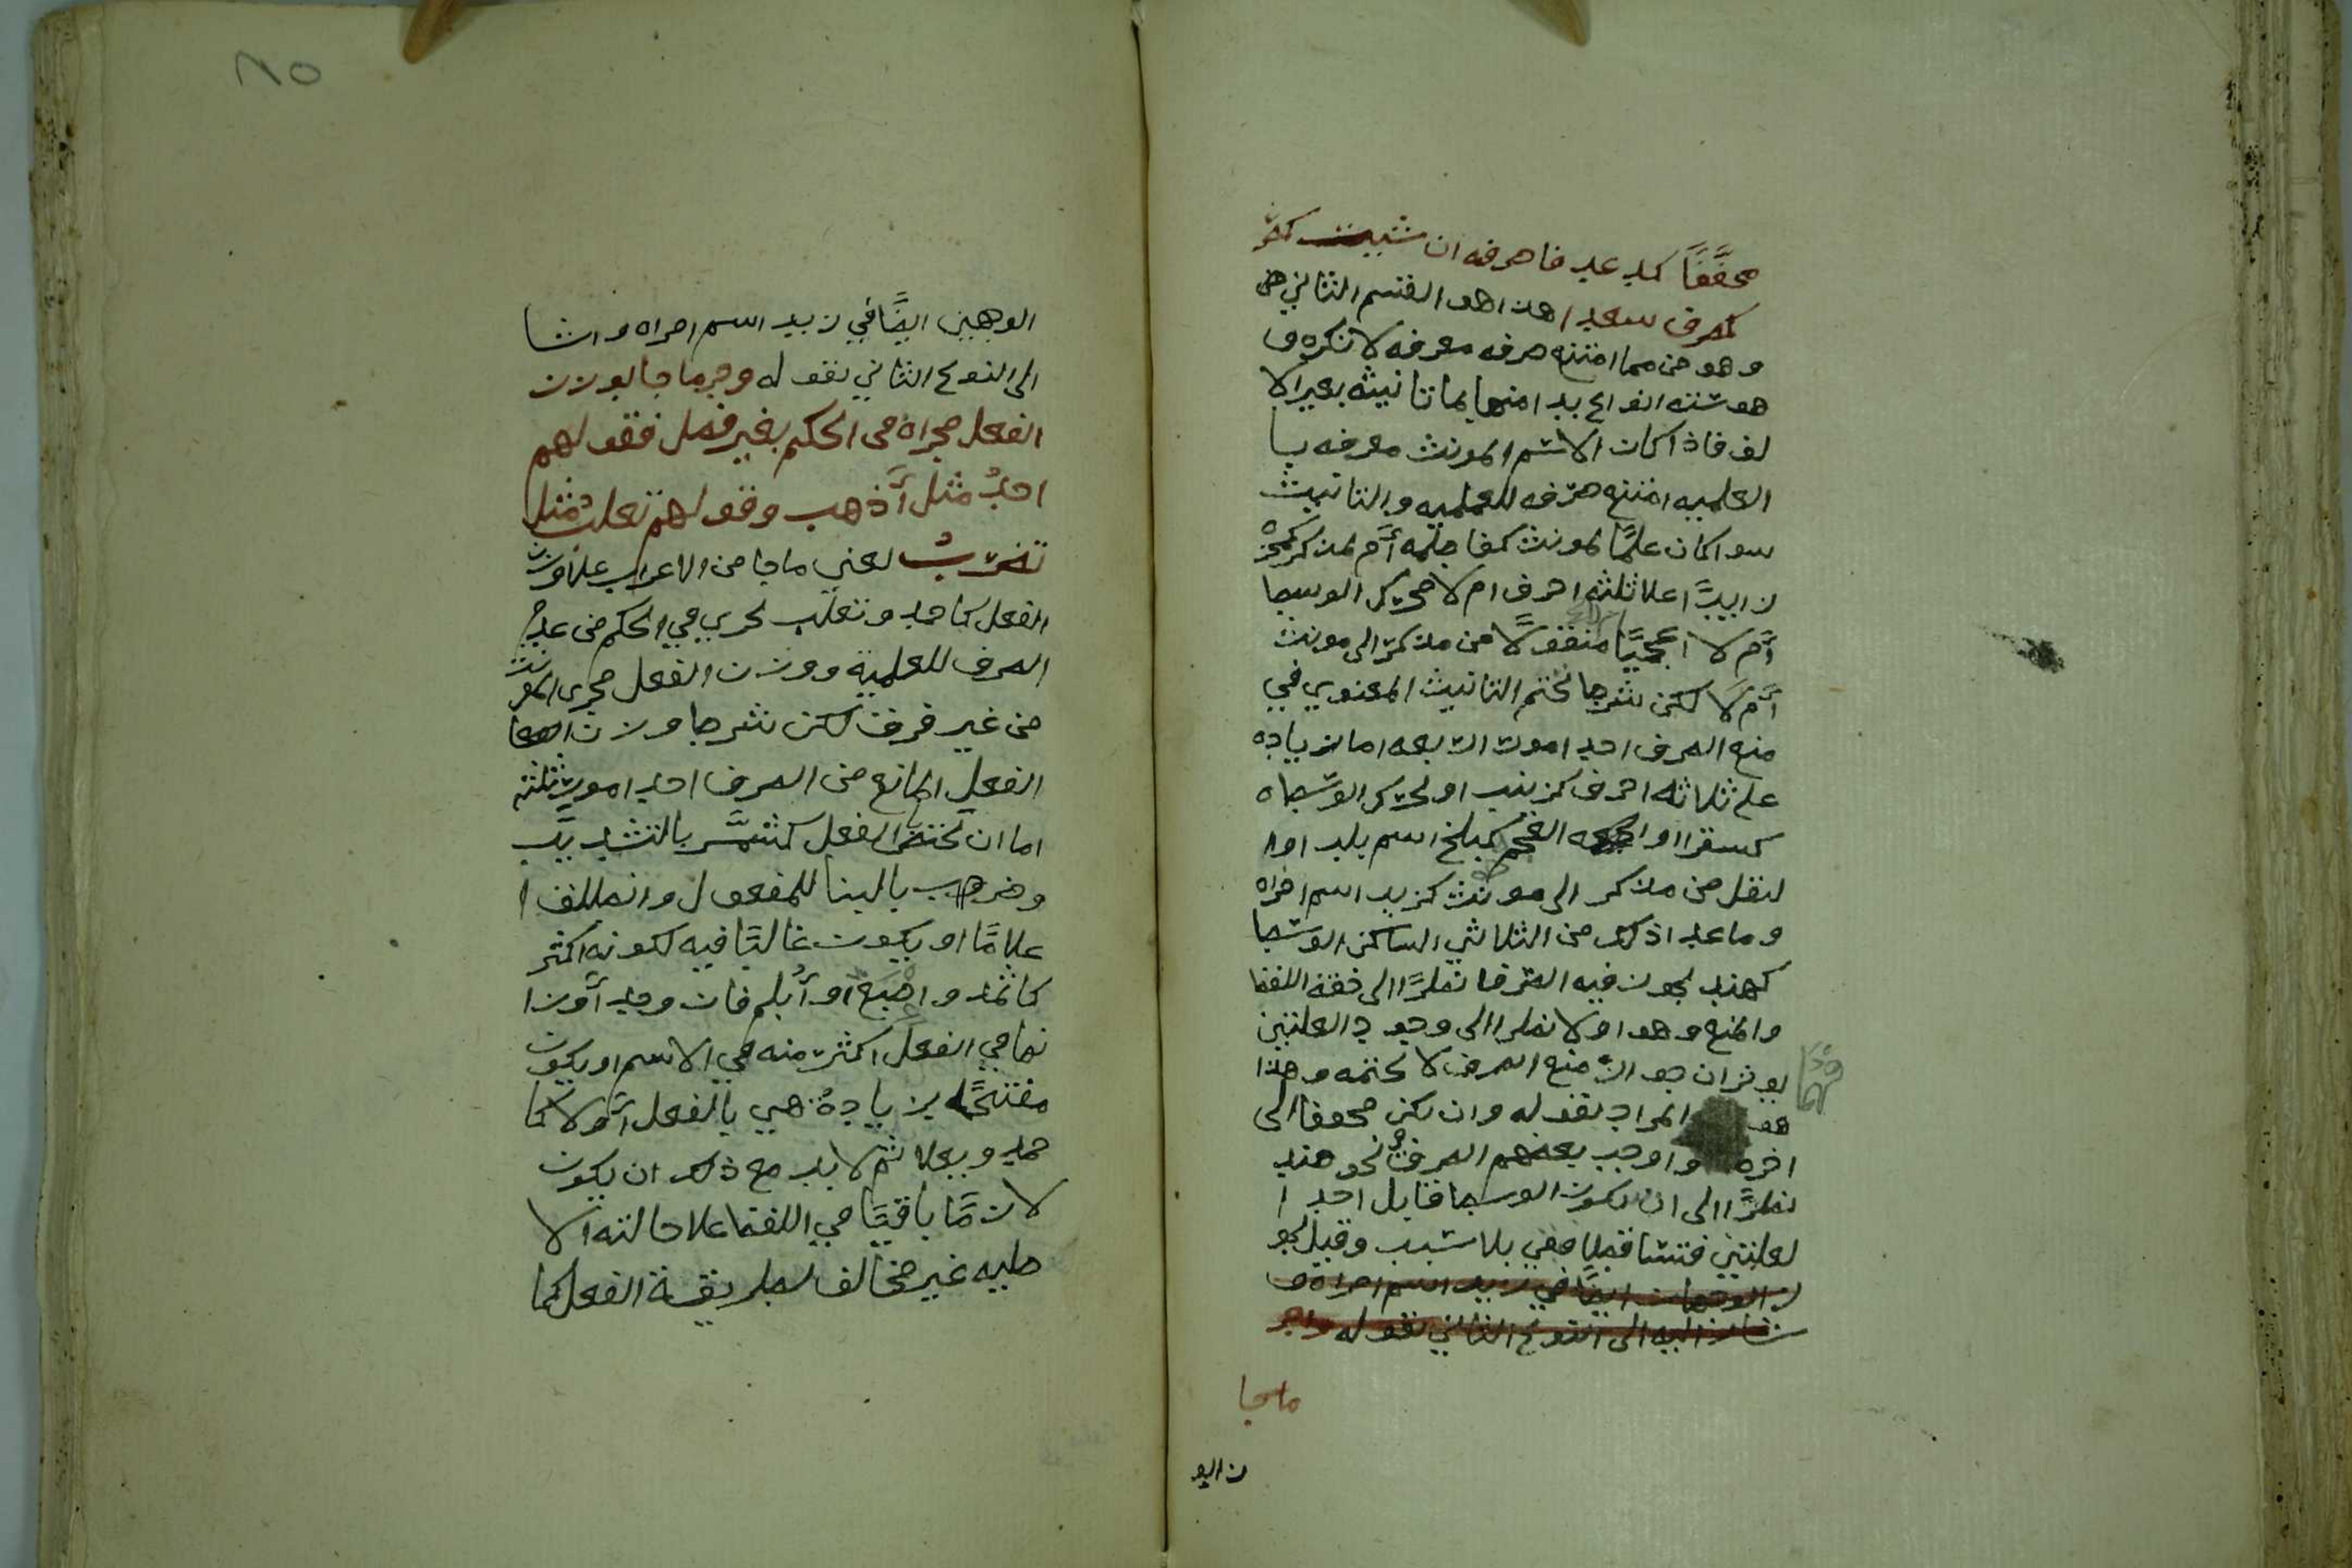 مخففًا كدعد فاصرفه ان شيت كصر
كصرف سعد اهذا هو القسم الثاني من
وهو من مما امتنع صرفه معرفه لا نكره و
هو ستته انواع بدا منها بما تانيثه بغير الا
لف فاذا كان الاسم المونث معرفه با
العلميه امتنع صرفه للعلميه والتانيث
سوا كان علمًا لمونث كفاطمه أم لمذكر كحمزه
زايدًا علا ثلثه احرف ام لا محرك الوسط
أم لا اعجميًا منقولًا من مذكر الى مونث
أم لا لكن شرط تحتم التانيث المعنوي في
منع الصرف احد امور اربعه اما زياده
على ثلاثه احرف كزينب او تحرك الوسط
كسقر او العجمه كبلخ اسم بلد او ا
لنقل من مذكر الى مونث كزيد اسم امراه
وما عدا ذلك من الثلاثي الساكن الوسط
كهند يجوز فيه الصرف نظرًا الى خفة اللفظ
والمنع وهو اولا نظرا الى وجود العلتين
يوثران جواز منع الصرف لا تحتمه وهذا
هو المراد بقوله وان يكن مخففا الى
اخره واوجب بعضهم الصرف في نحو هند
نظرًا الى ان سكون الوسط قابل احد ا
لعلتين فتساقطا فبقي بلا سبب وقيل يجو
ز الوجهان ايضًا في زيد اسم امراه و
شار اليه الى النوع الثاني بقوله واجر
ما جا
ن الو
٨٥
الوجهين ايضًا في زيد اسم امراه واشا
الى النوع الثاني بقوله وجر ما جا بوزن
الفعل مجراه في الحكم بغير فصل فقولهم
احمدُ مثل أذهب وقولهم تغلبُ مثل
تضربُ يعني ما جا من الاعراب علا وزن
الفعل كاحمد وتغلب يجري في الحكم من عدم
الصرف للعلمية ووزن الفعل مجرى المونث
من غير فرق لكن شرط وزن
الفعل المانع من الصرف احد امور ثلثه
اما ان يختص بالفعل كشمَّر بالتشديد
وضرب بالبنا للمفعول وانطلق ا
علامًا او يكون غالبًا فيه لكونه اكثر
كاثمد واصبع أو أبلم فان وجد أوزا
نها في الفعل اكثر منه في الاسم او يكون
مفتتحًا بزيادة هي بالفعل أولا كا
حمد ويعلا ثم لا بد مع ذلك ان يكون
لازمًا باقيًا في اللفظ علا حالته الا
صليه غير مخالف لطريقة الفعل كما